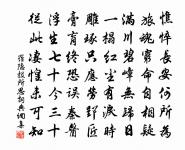 憔悴長安何所為
旅魂窮命自相疑
滿川碧嶂無歸日
一榻紅塵有淚時
雕琢只應勞郢匠
膏肓終恐誤秦醫
浮生七十今三十
從此淒惶未可知
羅隱投所思詞典網集